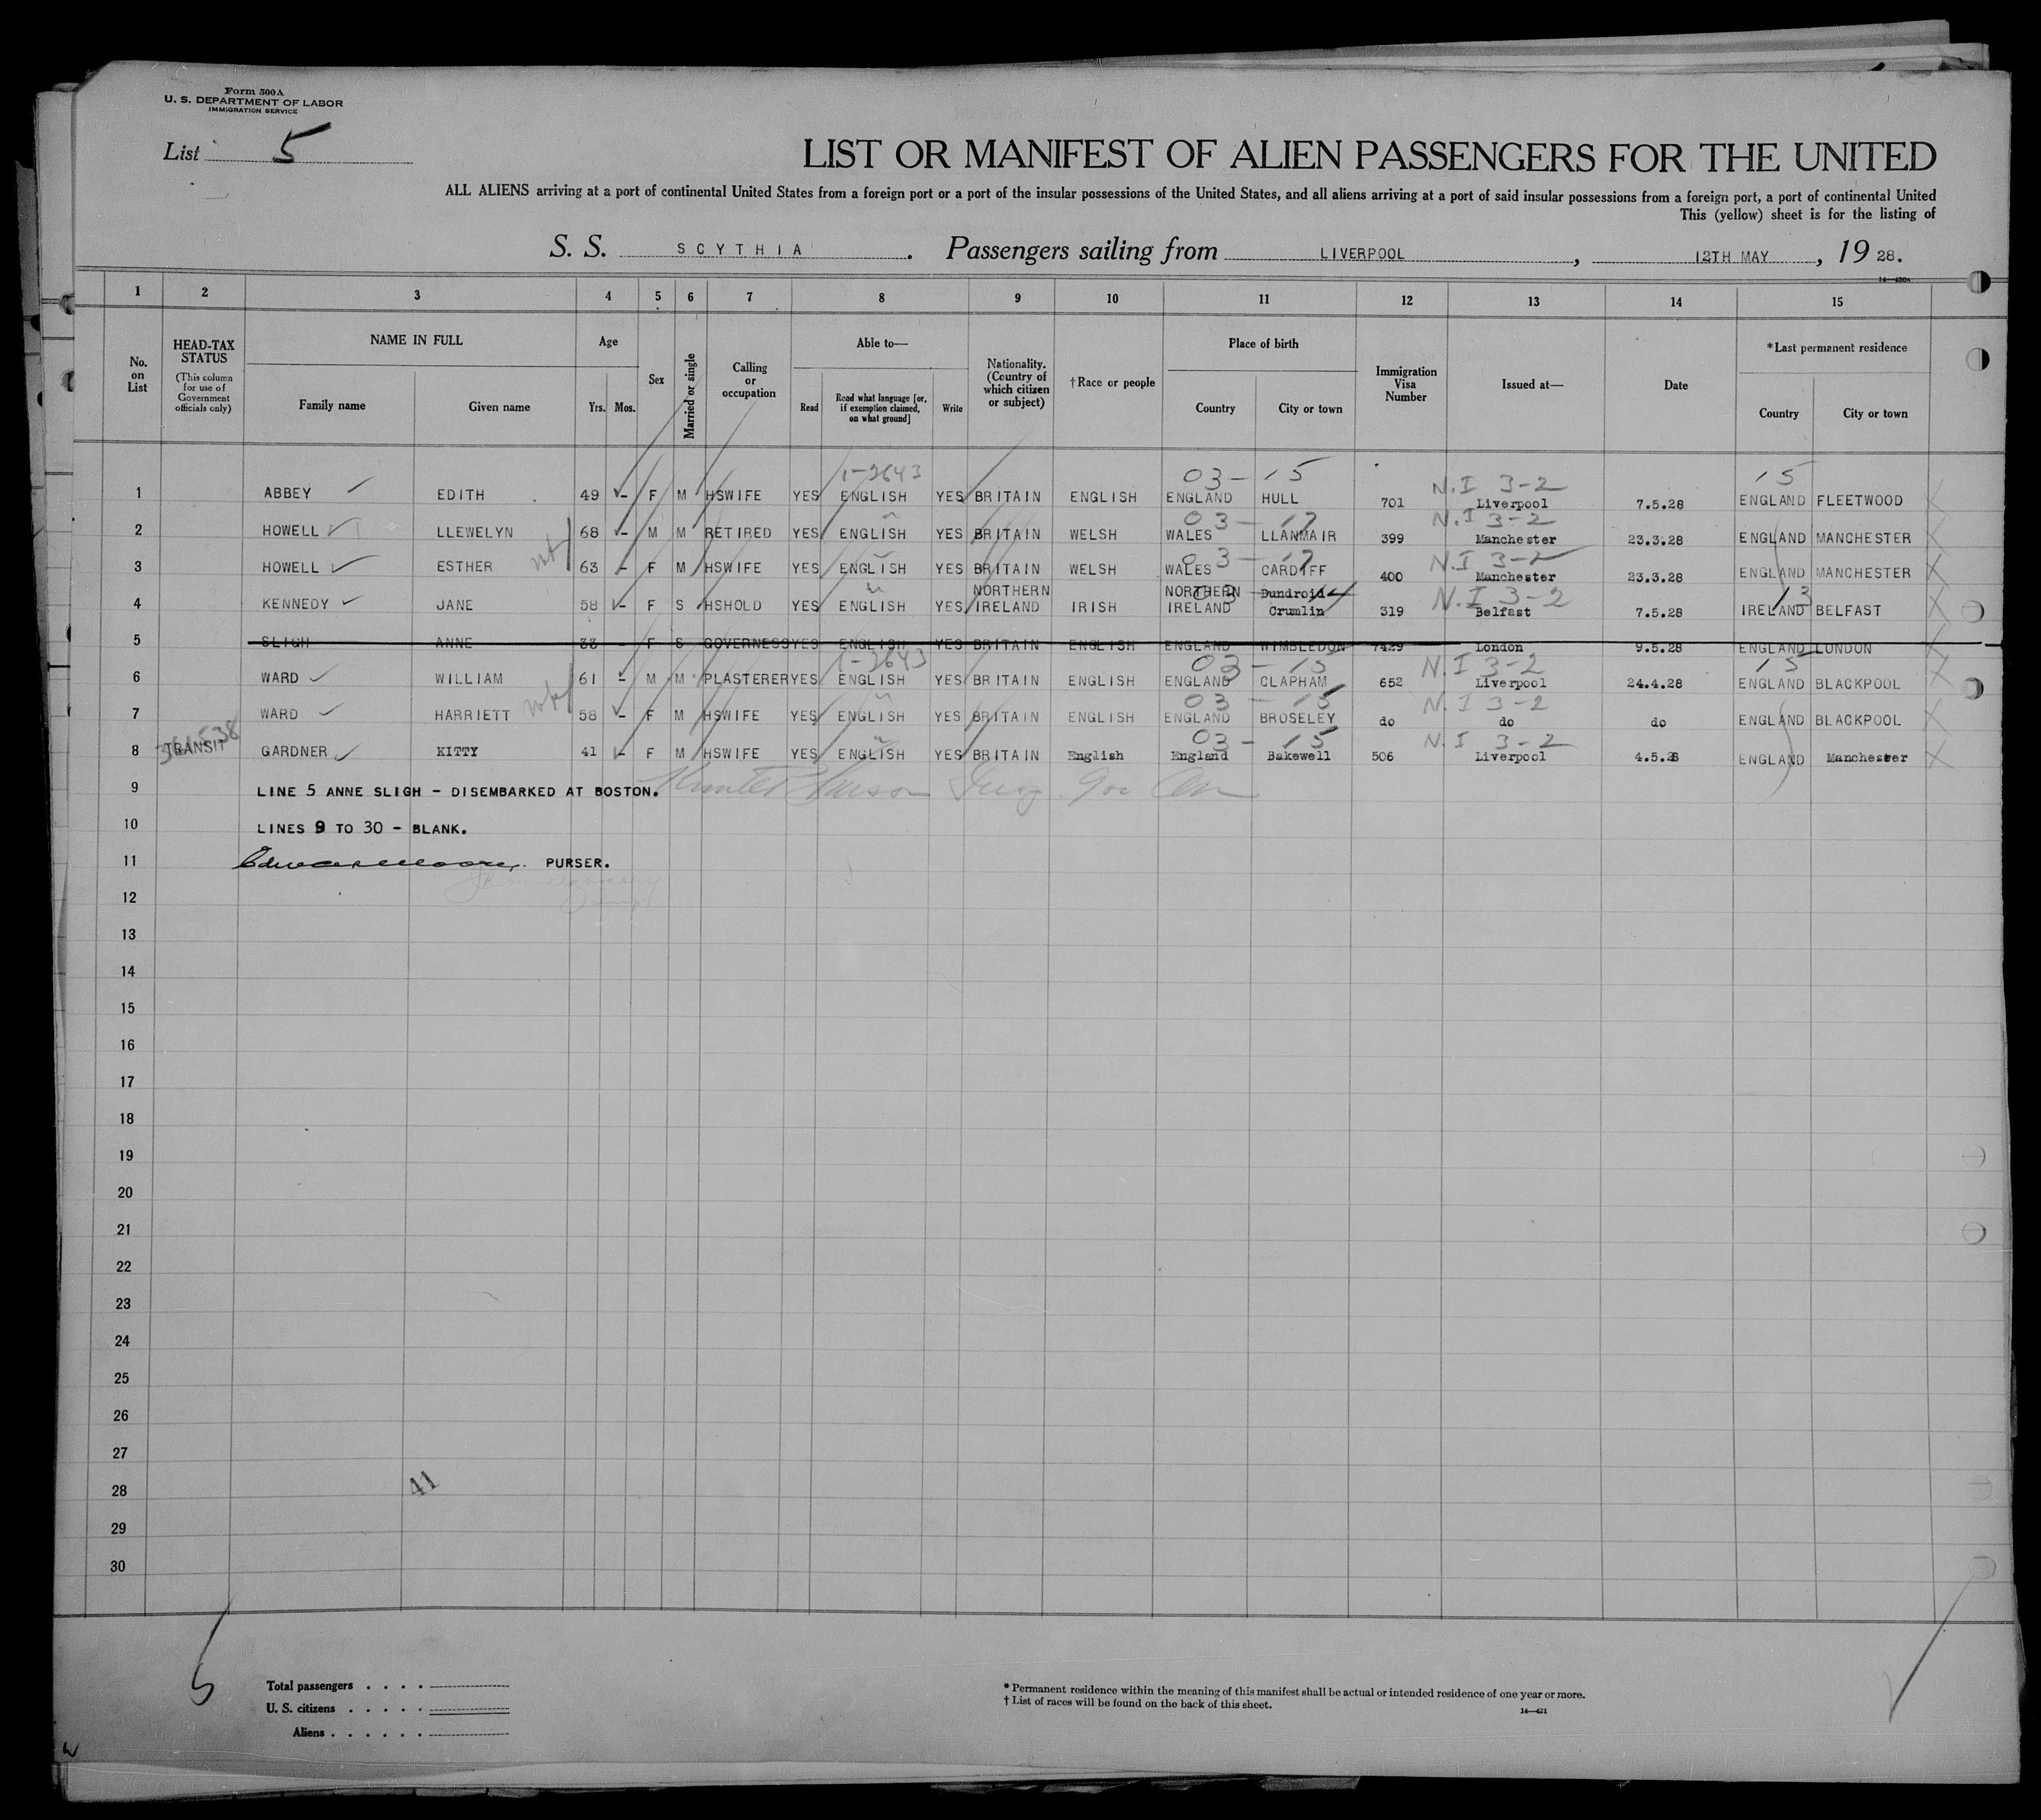 Form 500A
U. S. DEPARTMENT OF LABOR
IMMIGRATION SERVICE
List 5
LIST OR MANIFEST OF ALIEN PASSENGERS FOR THE UNITED
ALL ALIENS arriving at a port of continental United States from a foreign port or a port of the insular possessions of the United States, and all aliens arriving at a port of said insular possessions from a foreign port, a port of continental United
This (yellow) sheet is for the listing of
S. S. SCYTHIA. Passengers sailing from LIVERPOOL, 12TH MAY, 1928.
1 2 3 4 5 6 7 8 9 10 11 12 13 14 15
No. on List
HEAD-TAX STATUS
(This column for use of Government officials only)
NAME IN FULL
Family name Given name
Age
Yrs. Mos.
Sex
Married or single
Calling or occupation
Able to—
Read Read what language [or, if exemption claimed, on what ground] Write
Nationality. (Country of which citizen or subject)
†Race or people
Place of birth
Country City or town
Immigration Visa Number
Issued at—
Date
*Last permanent residence
Country City or town
1-2643 03-15 N.I 3-2 15
1 ABBEY EDITH 49 - F M HSWIFE YES ENGLISH YES BRITAIN ENGLISH ENGLAND HULL 701 Liverpool 7.5.28 ENGLAND FLEETWOOD
03-17 N.I 3-2
2 HOWELL LLEWELYN 68 - M M RETIRED YES ENGLISH YES BRITAIN WELSH WALES LLANMAIR 399 Manchester 23.3.28 ENGLAND MANCHESTER
03-17 N.I 3-2
3 HOWELL ESTHER 63 - F M HSWIFE YES ENGLISH YES BRITAIN WELSH WALES CARDIFF 400 Manchester 23.3.28 ENGLAND MANCHESTER
NORTHERN NORTHERN Dundroid N.I 3-2 13
4 KENNEDY JANE 58 - F S HSHOLD YES ENGLISH YES IRELAND IRISH IRELAND Crumlin 319 Belfast 7.5.28 IRELAND BELFAST
5 SLIGH ANNE 33 - F S GOVERNESS YES ENGLISH YES BRITAIN ENGLISH ENGLAND WIMBLEDON 7429 London 9.5.28 ENGLAND LONDON
1-2643 03-15 N.I 3-2 15
6 WARD WILLIAM 61 - M M PLASTERER YES ENGLISH YES BRITAIN ENGLISH ENGLAND CLAPHAM 652 Liverpool 24.4.28 ENGLAND BLACKPOOL
03-15 N.I 3-2
7 WARD HARRIETT 58 - F M HSWIFE YES ENGLISH YES BRITAIN ENGLISH ENGLAND BROSELEY do do do ENGLAND BLACKPOOL
03-15 N.I 3-2
8 TRANSIT GARDNER KITTY 41 - F M HSWIFE YES ENGLISH YES BRITAIN English England Bakewell 506 Liverpool 4.5.28 ENGLAND Manchester
9 LINE 5 ANNE SLIGH - DISEMBARKED AT BOSTON.
10 LINES 9 TO 30 - BLANK.
11 PURSER.
12
13
14
15
16
17
18
19
20
21
22
23
24
25
26
27
28 41
29
30
Total passengers
U. S. citizens
Aliens
* Permanent residence within the meaning of this manifest shall be actual or intended residence of one year or more.
† List of races will be found on the back of this sheet.
14—421